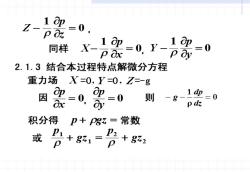 Z − 1/ρ ∂p/∂z = 0 ,
同样 X − 1/ρ ∂p/∂x = 0, Y − 1/ρ ∂p/∂y = 0
2.1.3 结合本过程特点解微分方程
重力场 X=0, Y=0, Z=-g
因 ∂p/∂x = 0, ∂p/∂y = 0 则 − g − 1/ρ dp/dz = 0
积分得 p + ρgz = 常数
或 p₁/ρ + gz₁ = p₂/ρ + gz₂